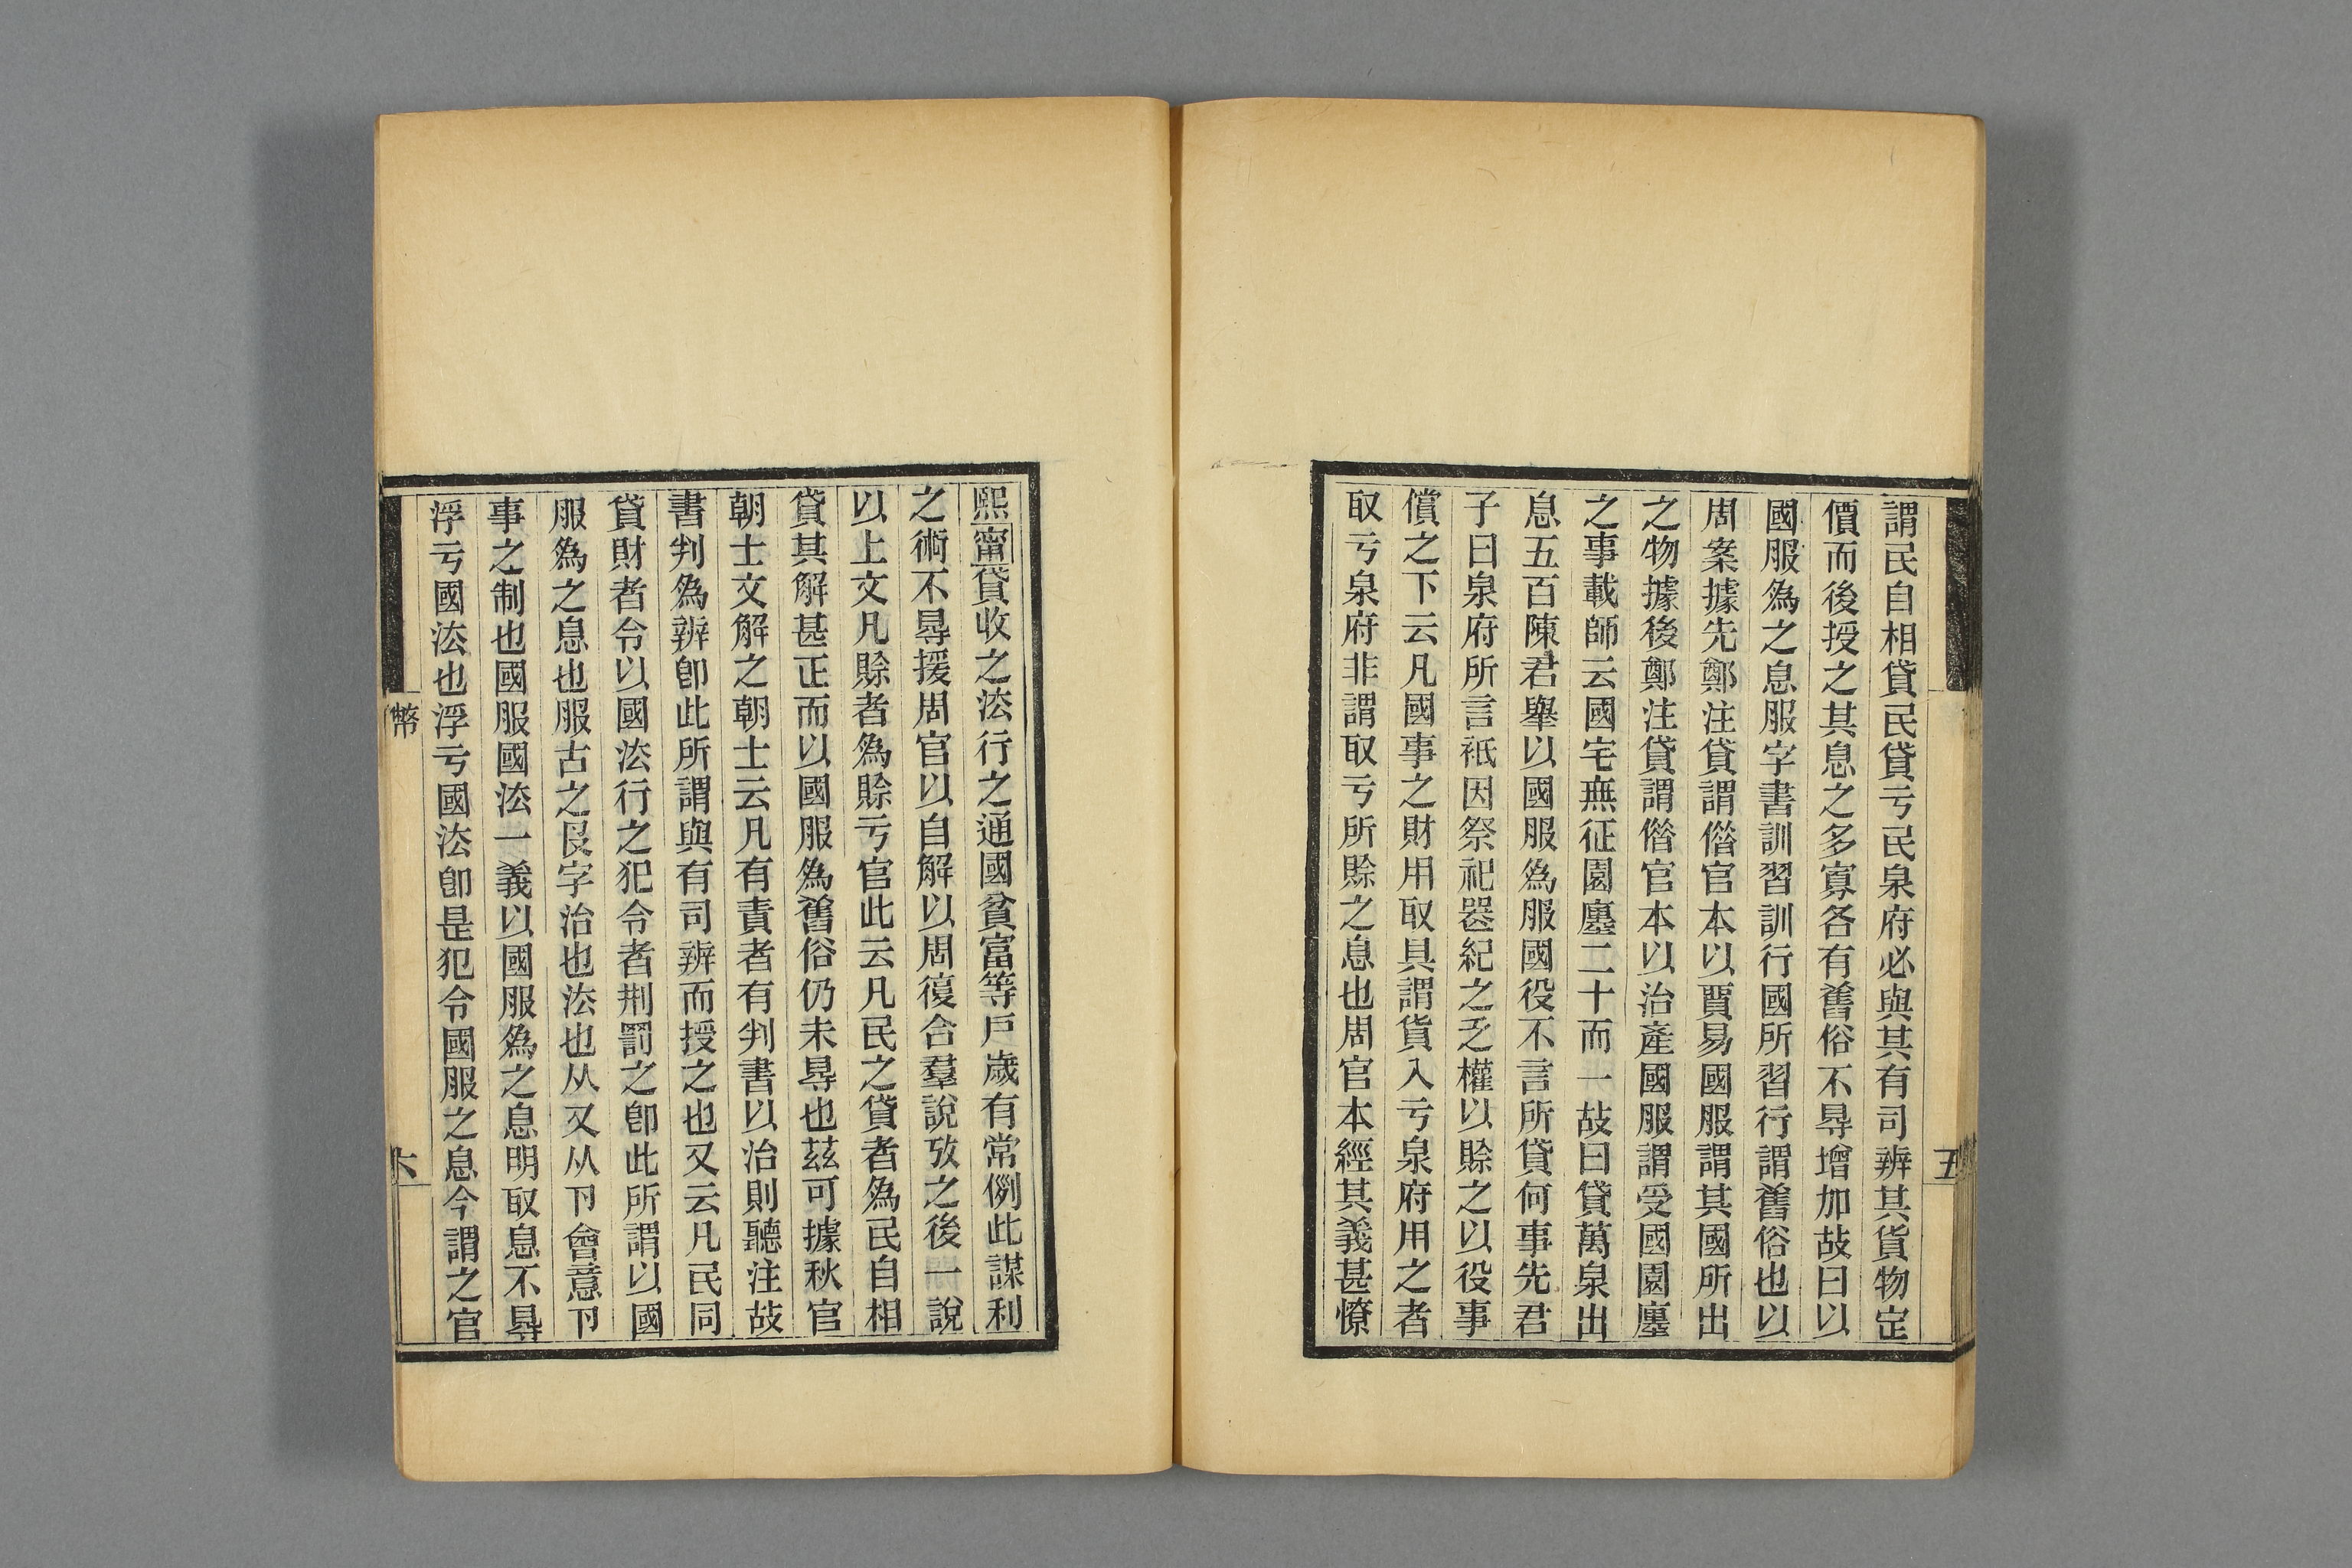 謂民自相貸民貸亏民泉府必與其有司辨其貨物定
價而後授之其息之多寡各有舊俗不㝵增加故曰以
國服為之息服字書訓習訓行國所習行謂舊俗也以
周案據先鄭注貸謂偺官本以賈易國服謂其國所出
之物據後鄭注貸謂偺官本以治產國服謂受國園廛
之事載師云國宅無征園廛二十而一故曰貸萬泉出
息五百陳君舉以國服為服國役不言所貸何事先君
子曰泉府所言祇因祭祀器紀之乏權以賒之以役事
償之下云凡國事之財用取具謂貨入亏泉府用之者
取亏泉府非謂取亏所賒之息也周官本經其義甚憭
五
熙甯貸收之法行之通國貧富等戶歲有常例此謀利
之術不㝵援周官以自解以周復合羣說攷之後一說
以上文凡賒者為賒亏官此云凡民之貸者為民自相
貸其解甚正而以國服為舊俗仍未㝵也茲可據秋官
朝士文解之朝士云凡有責者有判書以治則聽注故
書判為辨卽此所謂與有司辨而授之也又云凡民同
貸財者令以國法行之犯令者荆罰之卽此所謂以國
服為之息也服古之𠬝字治也法也从又从卪會意卪
事之制也國服國法一義以國服為之息明取息不㝵
浮亏國法也浮亏國法卽是犯令國服之息今謂之官
幣
六